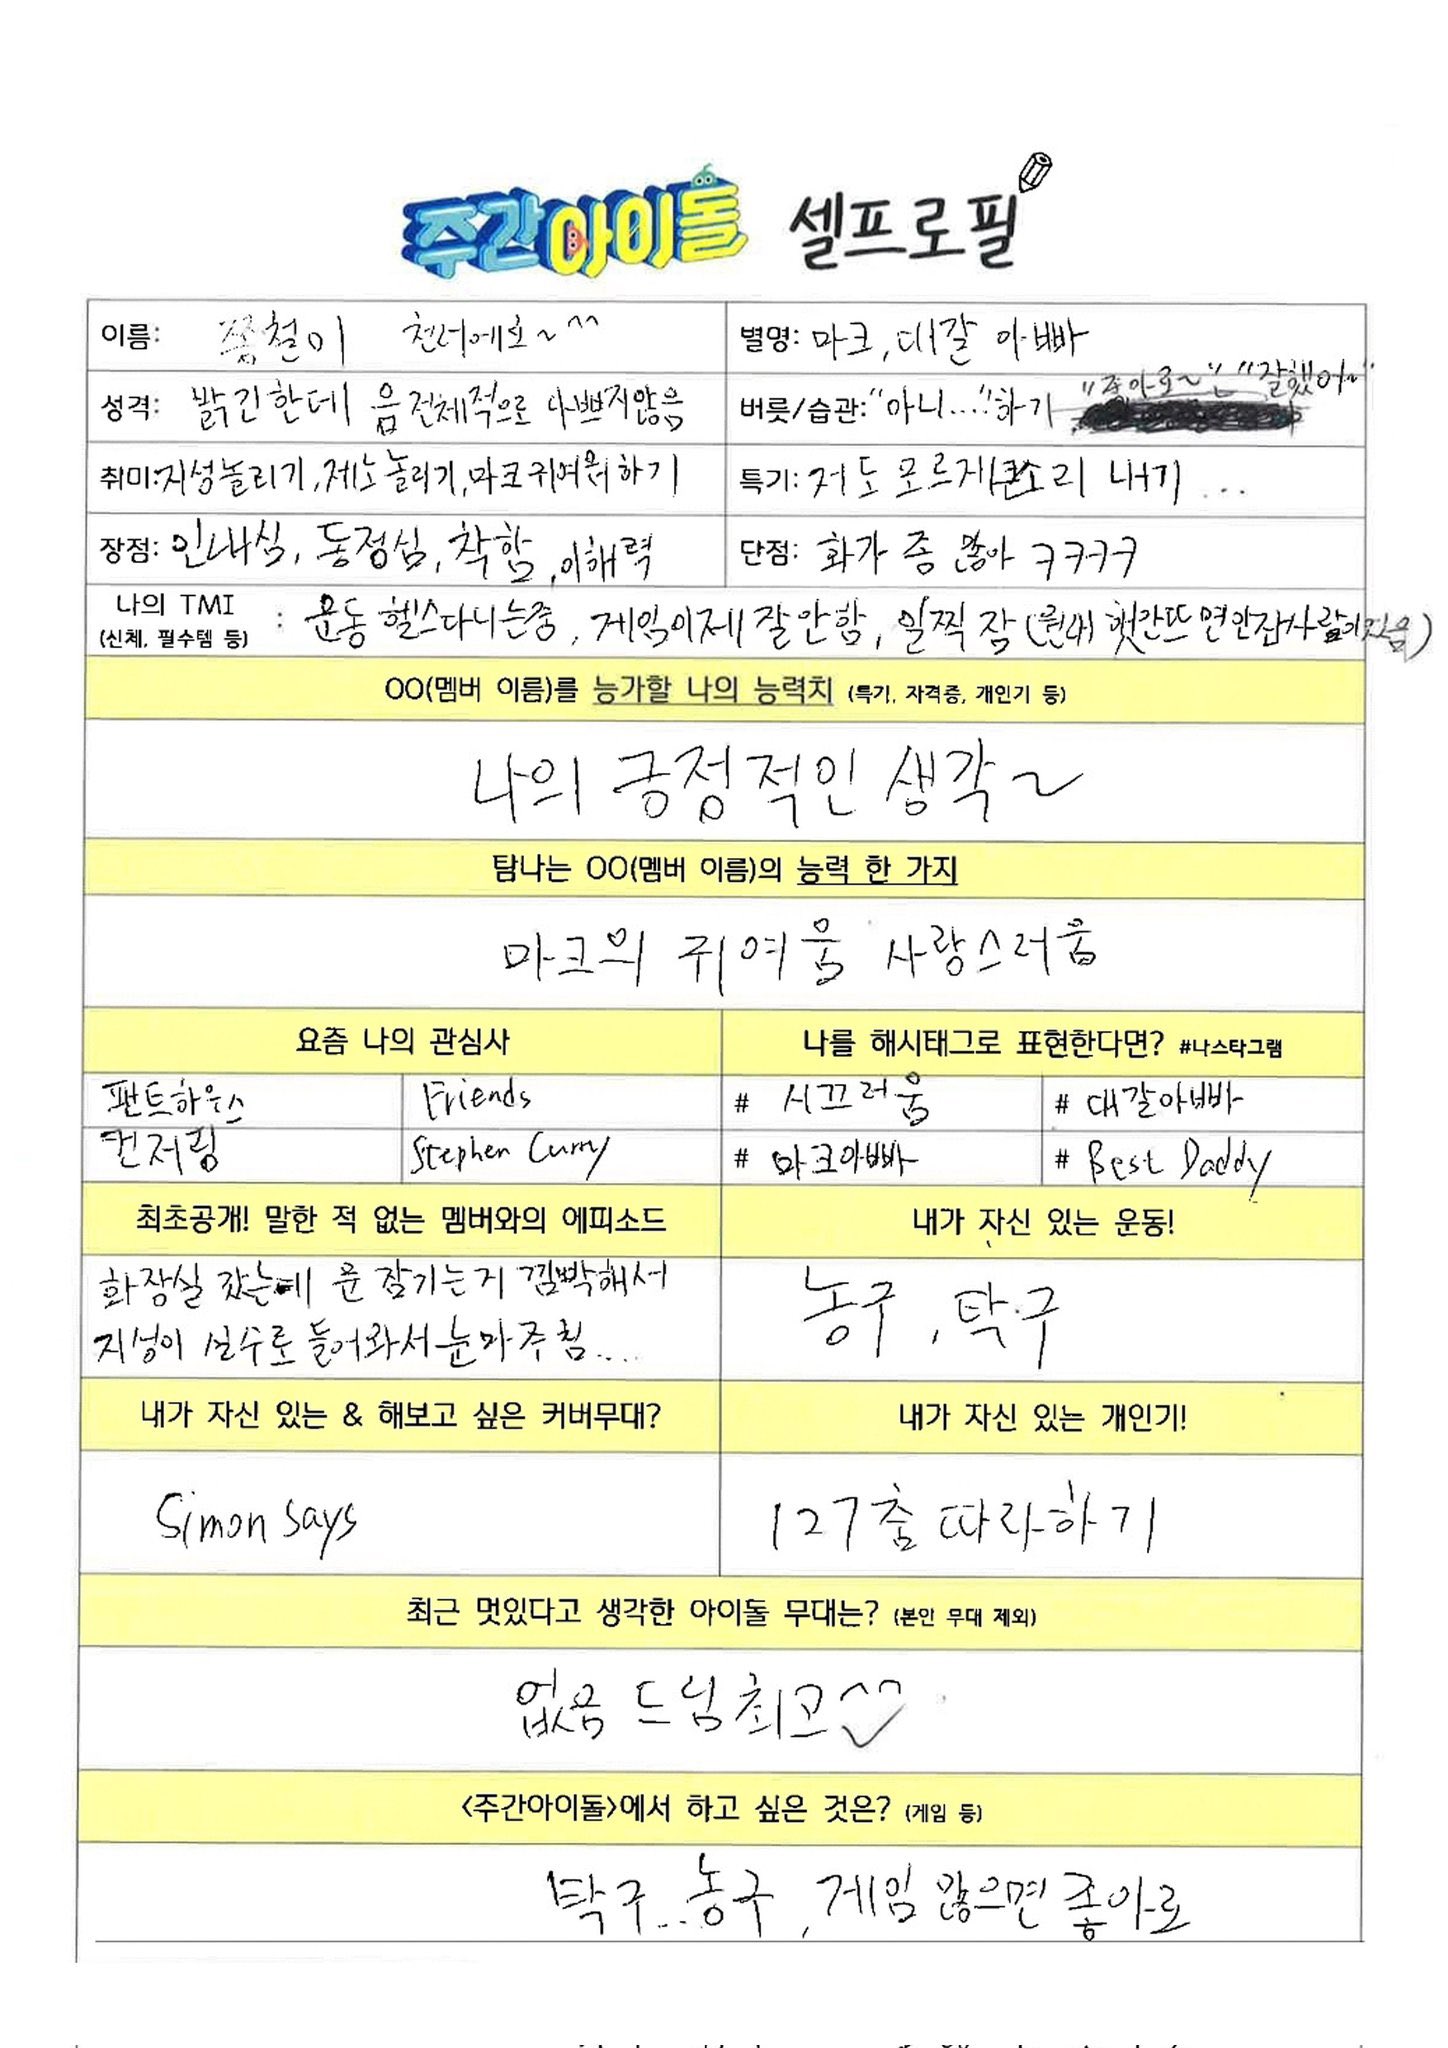 주간아이돌 셀프로필
이름: 쫑철이 천러에요~^^
별명: 마크, 대갈 아빠
성격: 밝긴한데 음 전체적으로 나쁘지않음
버릇/습관: "아니...."하기 "좋아로~" "잘했어~"
취미: 지성놀리기, 제노놀리기, 마크귀여워하기
특기: 저도 모르게 큰소리 내기 ...
장점: 인내심, 동정심, 착함, 이해력
단점: 화가 좀 많아 ㅋㅋㅋㅋ
나의 TMI : 운동 헬스다니는중, 게임이제 잘안함, 일찍 잠 (원래 햇안뜨면안잠사람이었음)
(신체, 필수템 등)
OO(멤버 이름)를 능가할 나의 능력치 (특기, 자격증, 개인기 등)
나의 긍정적인 생각~
탐나는 OO(멤버 이름)의 능력 한 가지
마크의 귀여움 사랑스러움
요즘 나의 관심사
나를 해시태그로 표현한다면? #나스타그램
펜트하우스 Friends # 시끄러움 # 대갈아빠
컨저링 Stephen Curry # 마크아빠 # Best Daddy
최초공개! 말한 적 없는 멤버와의 에피소드
내가 자신 있는 운동!
화장실 갔는데 문 잠기는거 깜빡해서
지성이 실수로 들어와서 눈마주침....
농구, 탁구
내가 자신 있는 & 해보고 싶은 커버무대?
내가 자신 있는 개인기!
Simon says
127춤 따라하기
최근 멋있다고 생각한 아이돌 무대는? (본인 무대 제외)
없음 드림최고^^
<주간아이돌>에서 하고 싶은 것은? (게임 등)
탁구...농구, 게임 많으면 좋아로